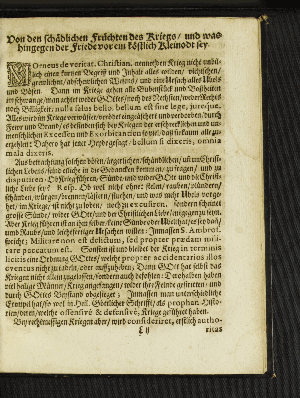 Von den schädlichen Früchten des Kriegs / und was
hingegen der Friede vor ein köstlich Kleinodt sey.
Orneus de veritat. Christian. nennet den Krieg nicht unbil-
lich einen kurtzen Begriff und Inhalt alles wilden / viehischen /
grewlichen / abschewlichen Wesens / und den Hirschen alles Ubels
und Bösen. Dann im Kriege gehen alle Bubenstück und Boßheiten
im schwange / man achtet weder Gottes / noch des Nechsten / weder Rechts
noch Billigkeit: nulla salus bello: bellum est sine lege, sine jure.
Alles wird im Kriege verwüstet / verderbet eingeäschert und verdorben / durch
Fewer und Brand / es befinden sich bey Kriegen der erschrecklichen und un-
menschlichen Excessen und Exorbitantien so viel / daß sie kaum alle zu-
erzehlen: Dahero hat jener Heyde gesagt: bellum si dixeris, omnia
mala dixeris.
Aus betrachtung solches bösen / ärgerlichen / schändlichen / uñ unChrist-
lichen Lebens / sind etliche in die Gedancken kommen / zu fragen / und zu
disputiren: Ob Krieg führen / Sünde und wider Gott und die Christ-
liche Liebe sey? Resp. Ob wol nicht ohne: stelen / rauben / plündern /
schänden / würgen / brennen /
het / im Kriege ist nicht zu loben / noch zu
grosse Sünde / wider Gott / und der Christlichen Liebe
Aber Krieg führen ist an ihm selber / keine
und Raubs / und leichtfertiger Hesachen willen: Inmassen S. Ambros.
bericht: Militare non est delictum, sed propter prædam mili-
tare peccatum est. Sonsten ist und bleibet der Krieg in terminis
licitis eine Ordnung Gottes / welche propter accidentarios illos
eventus nicht zu tadeln / oder auffzuheben; Dann Gott hat selbst das
Kriegen nicht allein zugelassen / sondern auch befohlen: Derohalben haben
viel heilige Männer / Krieg angefangen / wider ihre Feinde gestritten / und
durch Gottes Beystand obgesieget; Inmassen man unterschiedliche
Exempel hat / so wol in Heil. Göttlicher Schrifft / als prophan. Histo-
rien / deren / welche offensivè & defensivè, Kriege geführet haben.
Bey rechtmässigen Kriegen aber / wird consideriret, erstlich autho-
C ij
ritas